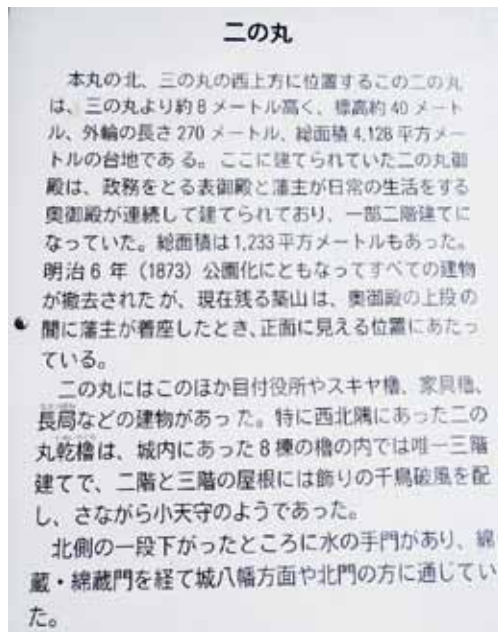 二の丸
本丸の北、三の丸の西上方に位置するこの二の丸
は、三の丸より約8メートル高く、標高約40メート
ル、外輪の長さ270メートル、総面積4,128平方メー
トルの台地である。ここに建てられていた二の丸御
殿は、政務をとる表御殿と藩主が日常の生活をする
奥御殿が連続して建てられており、一部二階建てに
なっていた。総面積は1,233平方メートルもあった。
明治6年（1873）公園化にともなってすべての建物
が撤去されたが、現在残る築山は、奥御殿の上段の
間に藩主が着座したとき、正面に見える位置にあたっ
ている。
二の丸にはこのほか目付役所やスキヤ櫓、家具櫓、
長局などの建物があった。特に西北隅にあった二の
丸乾櫓は、城内にあった8棟の櫓の内では唯一三階
建てで、二階と三階の屋根には飾りの千鳥破風を配
し、さながら小天守のようであった。
北側の一段下がったところに水の手門があり、綿
蔵・綿蔵門を経て城八幡方面や北門の方に通じてい
た。